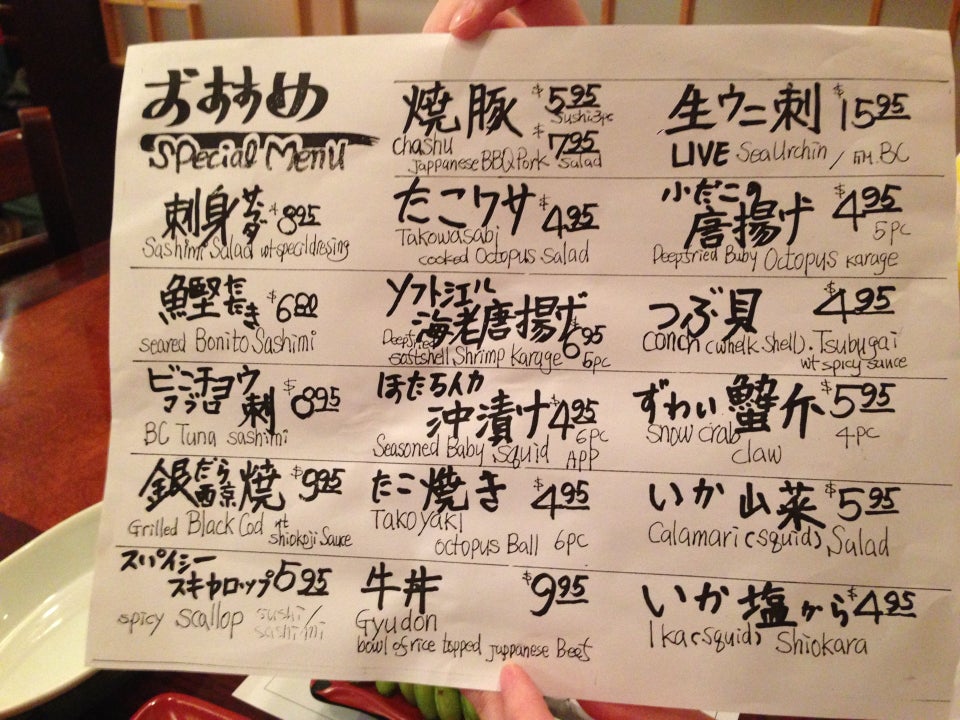 おすすめ
Special Menu
刺身サラダ $8.95
Sashimi Salad wt specil dressing
鰹たたき $6.80
seared Bonito Sashimi
ビンチョウ
マグロ刺 $8.95
BC Tuna sashimi
銀だら西京焼 $9.95
Grilled Black Cod wt
shiokoji Sauce
スパイシー
スキャロップ 5.95
spicy Scallop sushi/
sashimi
焼豚 $5.95
Sushi 3pc
$7.95
Salad
chashu
Jappanese BBQ Pork
たこワサ $4.95
Takowasabi
cooked Octopus Salad
ソフトシェル
海老唐揚げ
$6.95
Deepfried
softshell Shrimp Karage 5pc
ほたるイカ
沖漬け $4.95
Seasoned Baby Squid 6pc
APP
たこ焼き $4.95
TAKOYAKI
octopus Ball 6pc
牛丼 $9.95
Gyudon
bowl of rice topped jappanese Beef
生ウニ刺 $15.95
LIVE Sea Urchin / fm. BC
小だこの
唐揚げ $4.95
5pc
Deepfried Baby Octopus Karage
つぶ貝 $4.95
conch (whelk shell). Tsubugai
wt spicy sauce
ずわい蟹爪 $5.95
Snow crab
claw
4pc
いか山菜 $5.95
Calamari (squid) Salad
いか塩から $4.95
Ika (squid) Shiokara